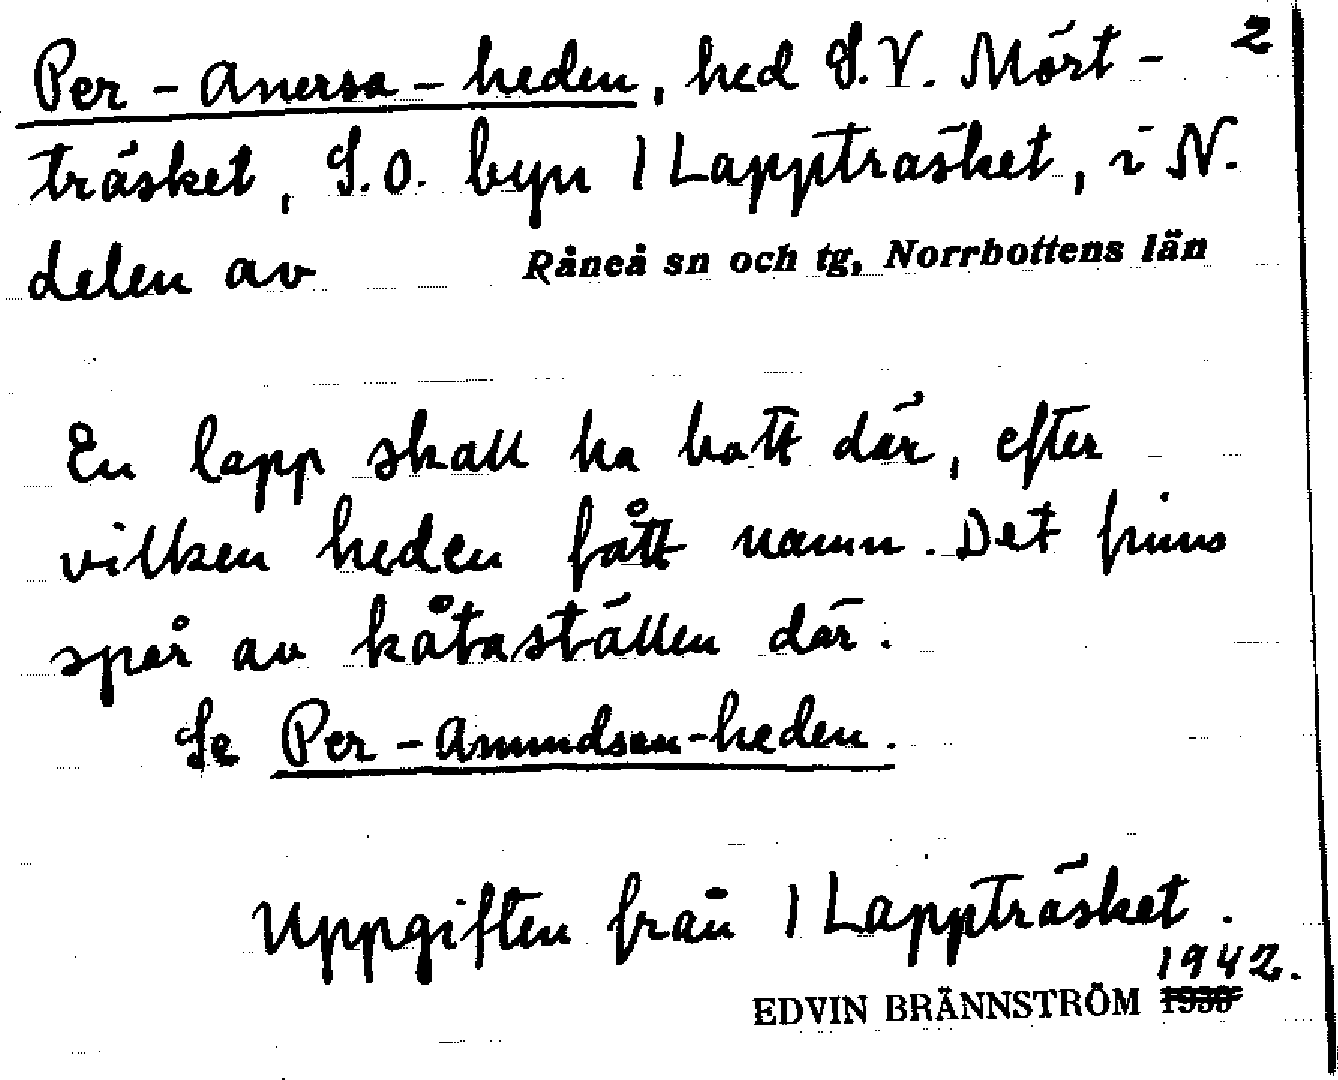 Per-Anersa-heden, hed S.V. Mört- 2
träsket, S.O. byn 1 Lappträsket, i N.
delen av Råneå sn och tg, Norrbottens län
En lapp skall ha bott där, efter
vilken heden fått namn. Det finns
spår av kåtaställen där.
Se Per-Amundsen-heden.
Uppgiften från 1 Lappträsket.
1942.
EDVIN BRÄNNSTRÖM 1930